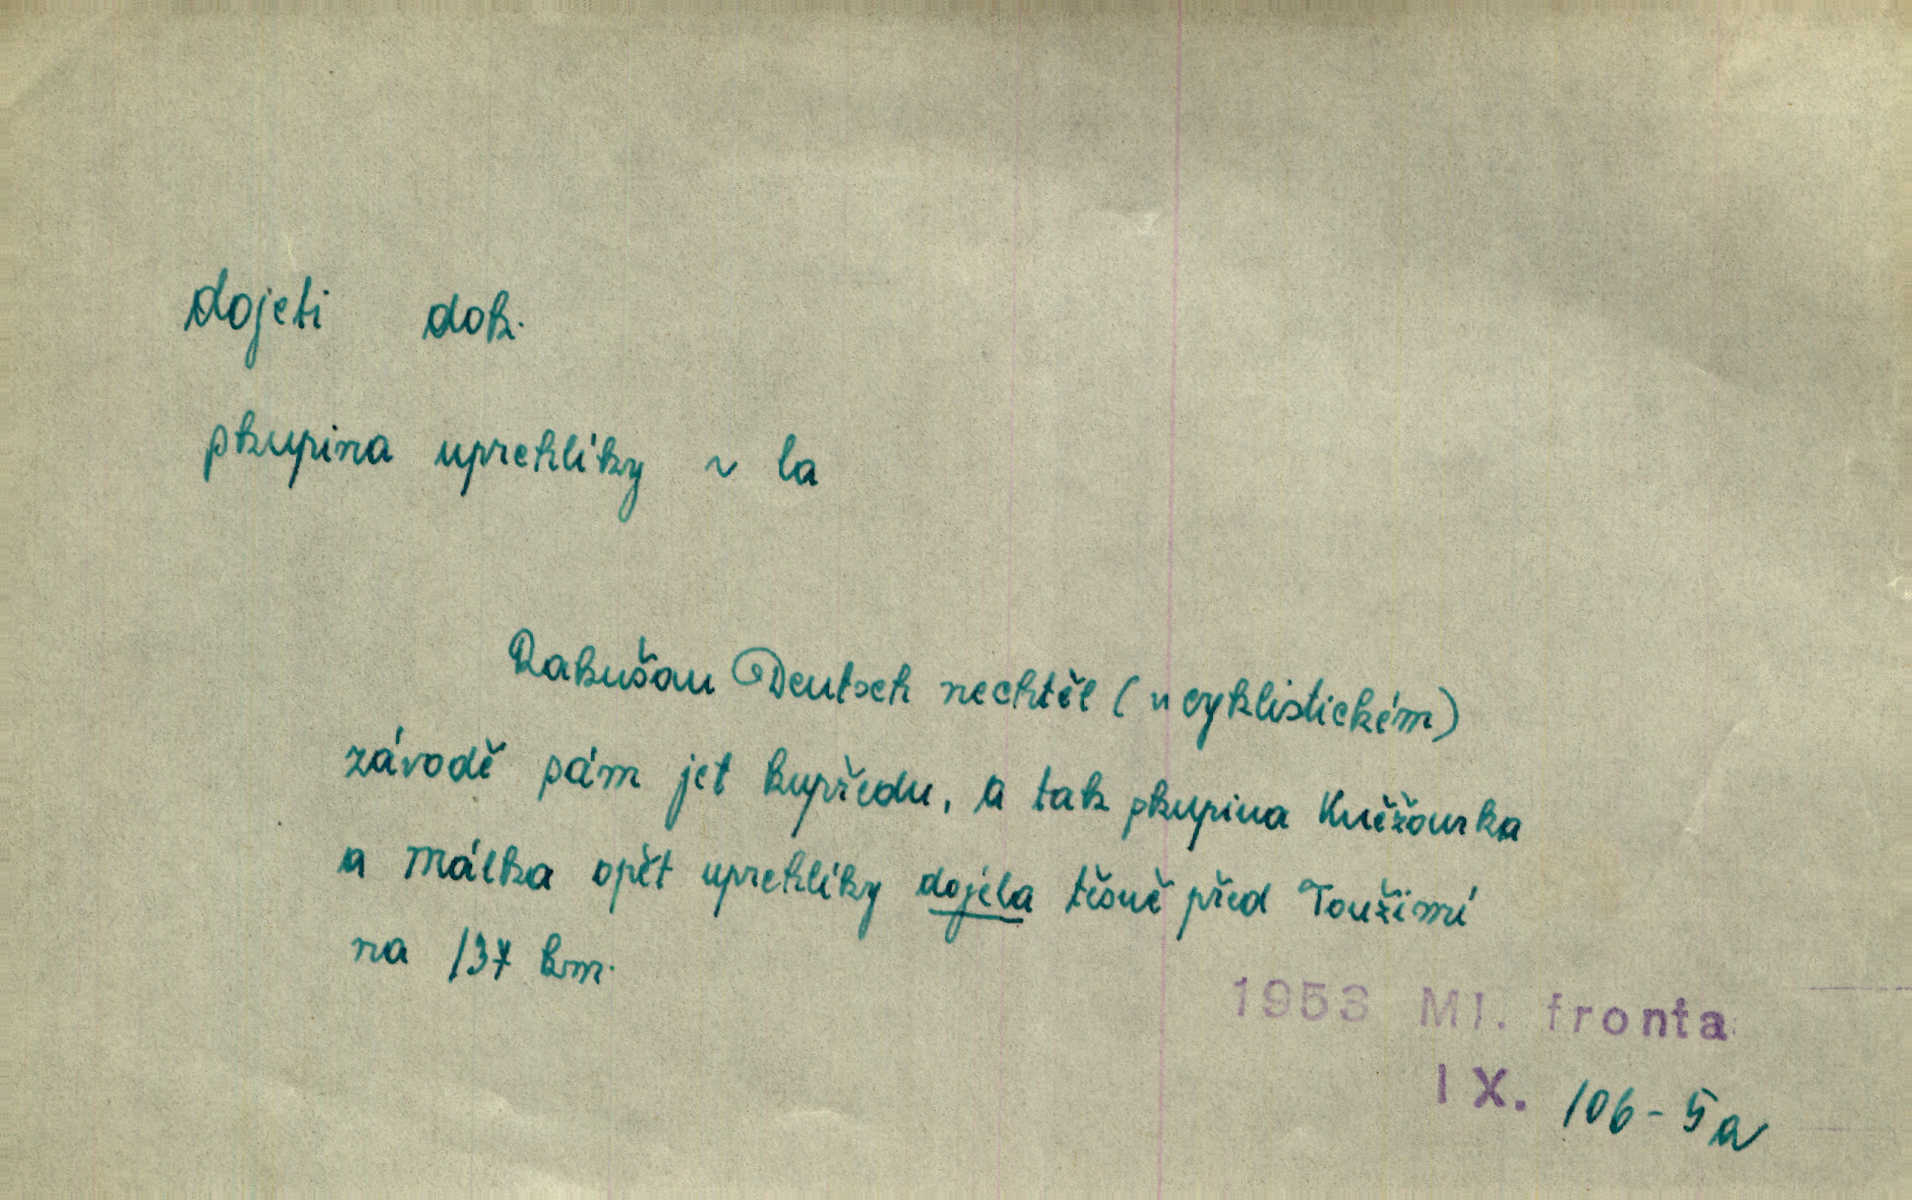 dojeti dok.
skupina uprchlíky ~ la
Rakušan Deutsch nechtěl (v cyklistickém)
závodě sám jet kupředu, a tak skupina Kněžourka
a Málka opět uprchlíky dojela těsně před Toužimí
na 137 km.
1953 Ml. fronta
IX. 106-5a